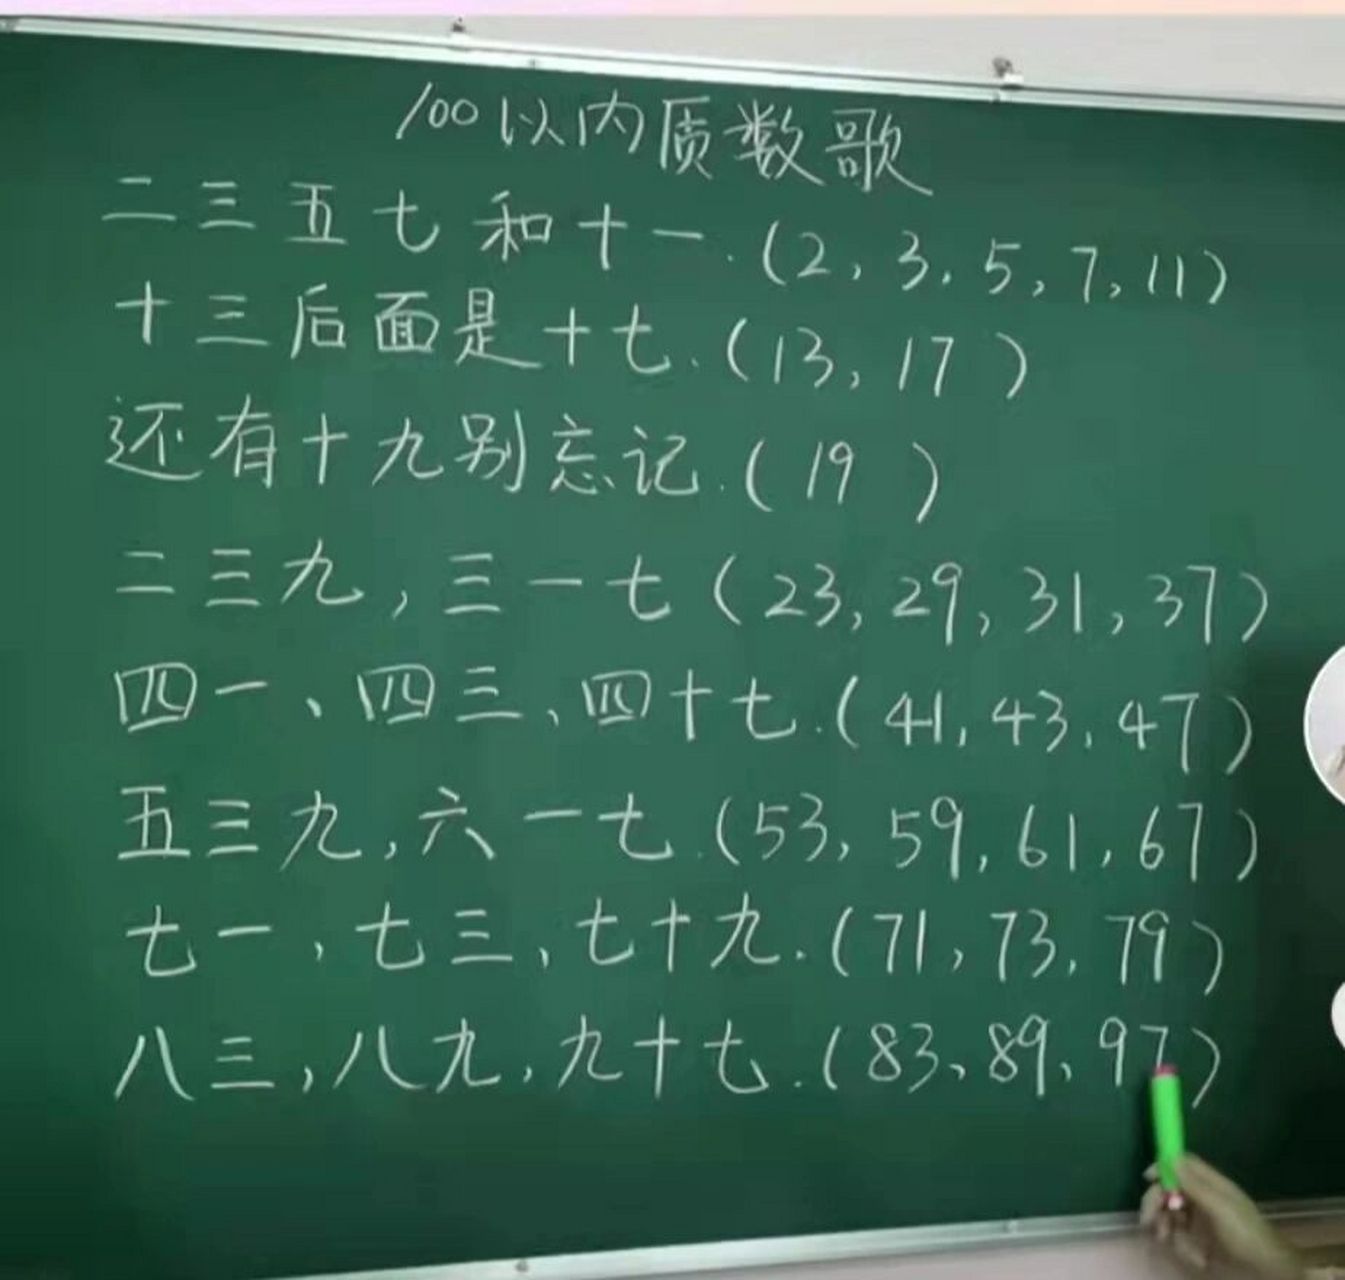 100以内质数歌
二三五七和十一.(2,3,5,7,11)
十三后面是十七.(13,17)
还有十九别忘记.(19)
二三九,三一七(23,29,31,37)
四一、四三、四十七.(41,43,47)
五三九,六一七.(53,59,61,67)
七一、七三、七十九.(71,73,79)
八三,八九,九十七.(83、89、97)